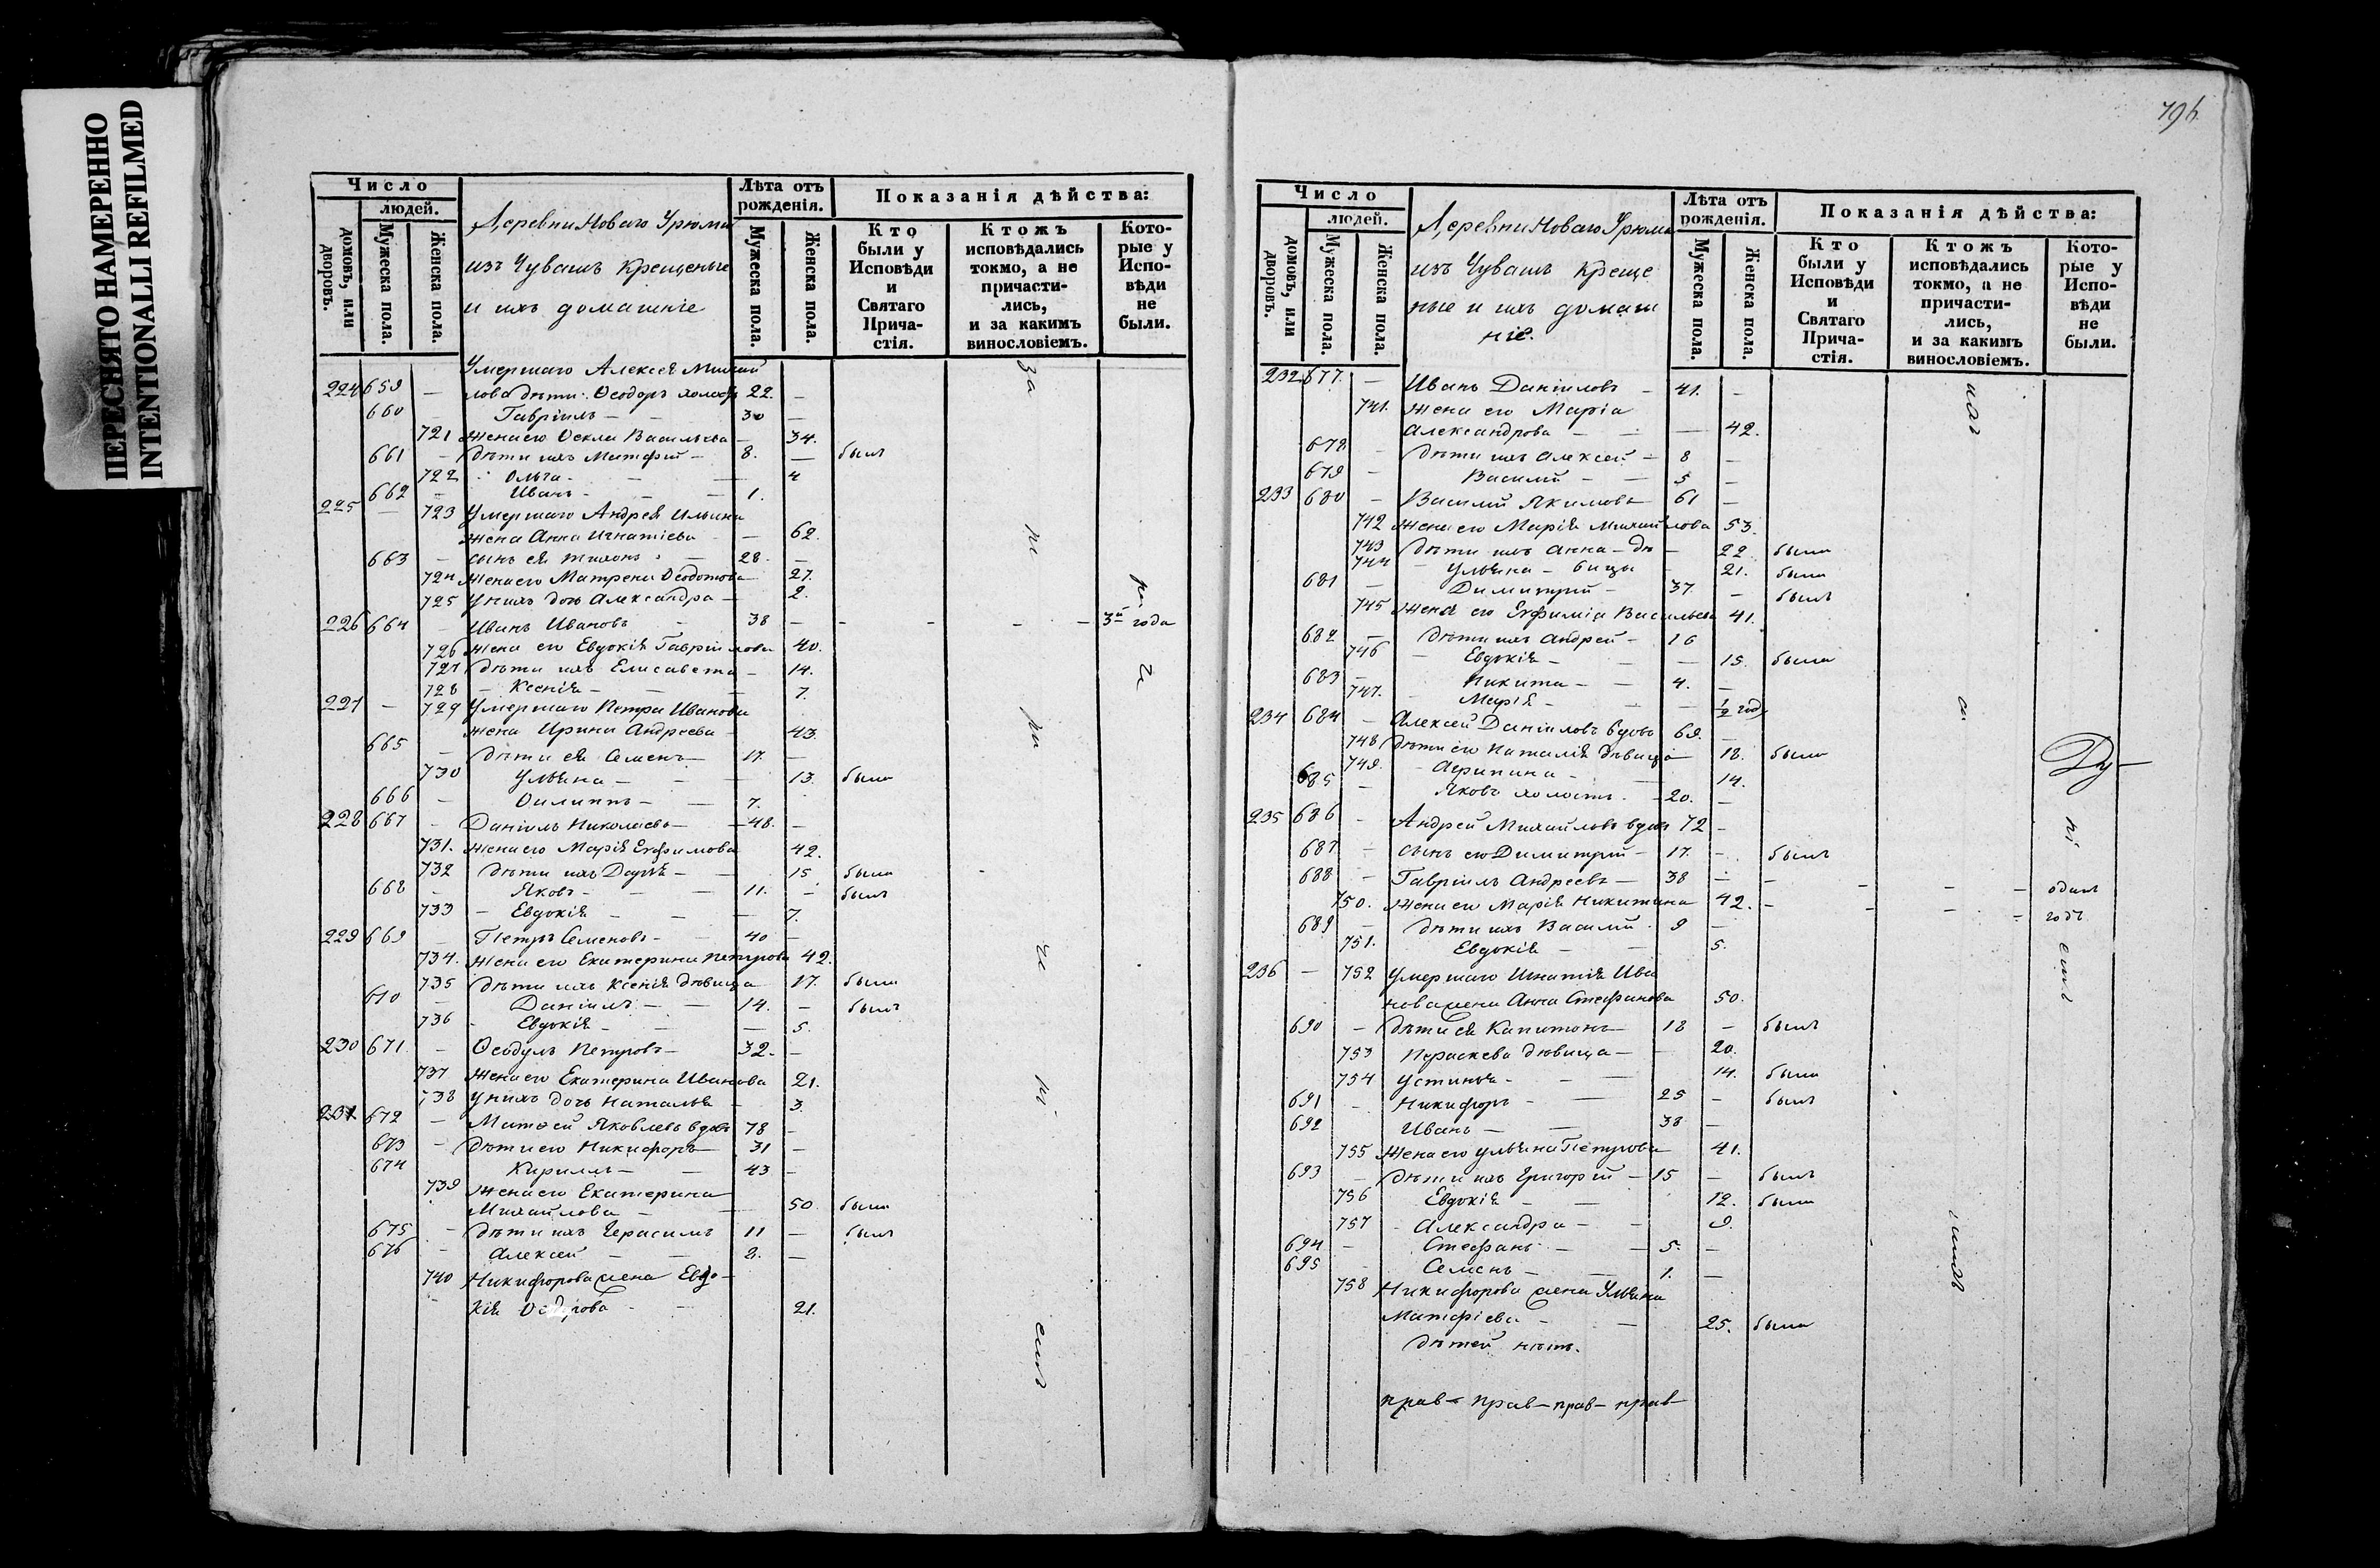 ПЕРЕСНЯТО НАМЕРЕННО
INTENTIONALLI REFILMED
Число
людей.
домовъ, или дворовъ.
Мужеска пола.
Женска пола.
Деревни Новаго Урюма
изъ Чувашъ Крещеные
и ихъ домашніе
Лѣта отъ рожденія.
Мужеска пола.
Женска пола.
Показанія дѣйства:
Кто были у Исповѣди и Святаго Прича-стія.
Ктожъ исповѣдались токмо, а не причасти-лись, и за какимъ винословіемъ.
Кото-рые у Испо-вѣди не были.
Умершаго Алексѣя Михай
224 659 — лова дѣти: Ѳеодоръ холостъ 22. —
660 Гавріилъ — — 30 —
721 Жена его Ѳекла Васильева — 34.
661 — Дѣти ихъ Матфій — 8. — былъ
722 Ольга — — — 4
662 — Иванъ — — 1.
225 — 723 Умершаго Андрея Ильина
жена Анна Игнатіева — 62.
663 — сынъ ея Тихонъ — 28. —
724 Жена его Матрена Ѳедотова — 27.
725 У нихъ дочь Александра — 2.
226 664 — Иванъ Ивановъ — 38 — - - - — 3й года
726 Жена его Евдокія Гавріилова 40.
727 Дѣти ихъ Елисавета — 14.
728 — Ксенія — — — 7.
227 — 729 Умершаго Петра Иванова
жена Ирина Андреева — 43.
665 — Дѣти ея Семенъ — 17. —
730 Ульяна — — — 13. была
666 — Филиппъ — — 7.
228 667 — Даніилъ Николаевъ — 48. —
731. Жена его Марія Ефимова 42.
732 Дѣти ихъ Дарья — — 15 была
668 — Яковъ — — 11. — былъ
733 — Евдокія — — — 7.
229 669 — Петръ Семеновъ — 40 —
734. Жена его Екатерина Петрова 42.
735 Дѣти ихъ Ксенія дѣвица — 17. была
670 — Даніилъ — — 14. — былъ
736 - Евдокія — — — 5.
230 671 — Ѳеодулъ Петровъ — 32. —
737 Жена его Екатерина Иванова 21.
738 У нихъ дочь Наталья — 3.
231 672 — Матвей Яковлевъ вдовъ 78 —
673 — Дѣти его Никифоръ — 31 —
674 Кириллъ — — 43 —
739 Жена его Екатерина
Михайлова — — 50. была
675 — Дѣти ихъ Герасимъ 11 — былъ
676 — Алексей — — 8. —
740 Никифорова жена Евдо-
кія Ѳедорова — — 21.
796
Число
людей.
домовъ, или дворовъ.
Мужеска пола.
Женска пола.
Деревни Новаго Урюма
изъ Чувашъ Креще
ные и ихъ домаш
ніе.
Лѣта отъ рожденія.
Мужеска пола.
Женска пола.
Показанія дѣйства:
Кто были у Исповѣди и Святаго Прича-стія.
Ктожъ исповѣдались токмо, а не причасти-лись, и за какимъ винословіемъ.
Кото-рые у Испо-вѣди не были.
232 677. — Иванъ Даніиловъ — 41. —
741. Жена его Марія
Александрова — — — 42.
678 — Дѣти ихъ Алексей — 8 —
679 — Василій — — 5 —
233 680 — Василій Якимовъ 61 —
742 Жена его Марія Михайлова 53.
743 Дѣти ихъ Анна — дѣ — 22. была
744 — Ульяна — вицы — 21. была
681 — Димитрій — 37. — былъ
745 Жена его Евфимія Васильева 41.
682 — Дѣти ихъ Андрей — 16
746 — Евдокія — — — 15. была
683 — Никита — — 4. —
747. - Марія — — — ½ года
234 684 — Алексей Даніиловъ вдовъ 69. —
748 Дѣти его Наталія дѣвица — 18. была
749. - Агрипина — — 14.
685 — Яковъ холостъ. — 20. —
235 686 — Андрей Михайловъ вдовъ 72 —
687 — сынъ его Димитрій — 17. — былъ
688 — Гавріилъ Андреевъ — 38 — — - - — одинъ
750. Жена его Марія Никитина 42. — - - - годъ
689 — Дѣти ихъ Василій 9 —
751. Евдокія — — 5.
236 — 752 Умершаго Игнатія Ива
нова жена Анна Стефанова 50.
690 — Дѣти ея Капитонъ — 18 — былъ
753 Параскева дѣвица — — 20.
754 Устинья — — — 14. была
691 — Никифоръ — — 25 — былъ
692 Иванъ — — 38 —
755 Жена его Ульяна Петрова 41.
693 — Дѣти ихъ Григорій — 15 — былъ
756 Евдокія — — 12. была
757 - Александра — — 9.
694 — Стефанъ — — 5. —
695 - Семенъ — — 1. —
758 Никифорова жена Ульяна
Матфіева — — 25. была
дѣтей нѣтъ.
прав— прав— прав— прав—